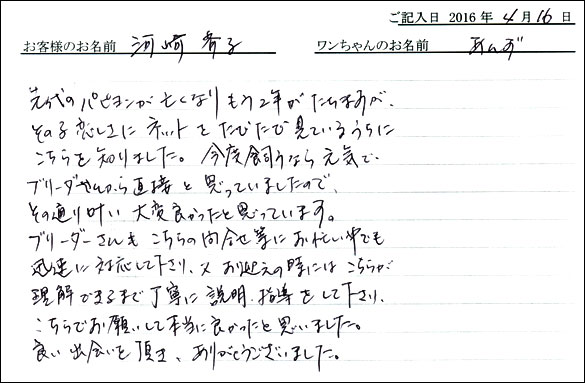 ご記入日 2016年 4月 16日
お客様のお名前 河崎 秀子 ワンちゃんのお名前 あんず
先代のパピヨンが亡くなりもう2年がたちますが、
その子恋しさにネットをたびたび見ているうちに
こちらを知りました。今度飼うなら元気で、
ブリーダーさんから直接と思っていましたので、
その通り叶い大変良かったと思っています。
ブリーダーさんもこちらの問合せ等にお忙しい中でも
迅速に対応して下さり、又お迎えの時にはこちらが
理解できるまで丁寧に説明、指導をして下さり、
こちらでお願いして本当に良かったと思いました。
良い出会いを頂き、ありがとうございました。